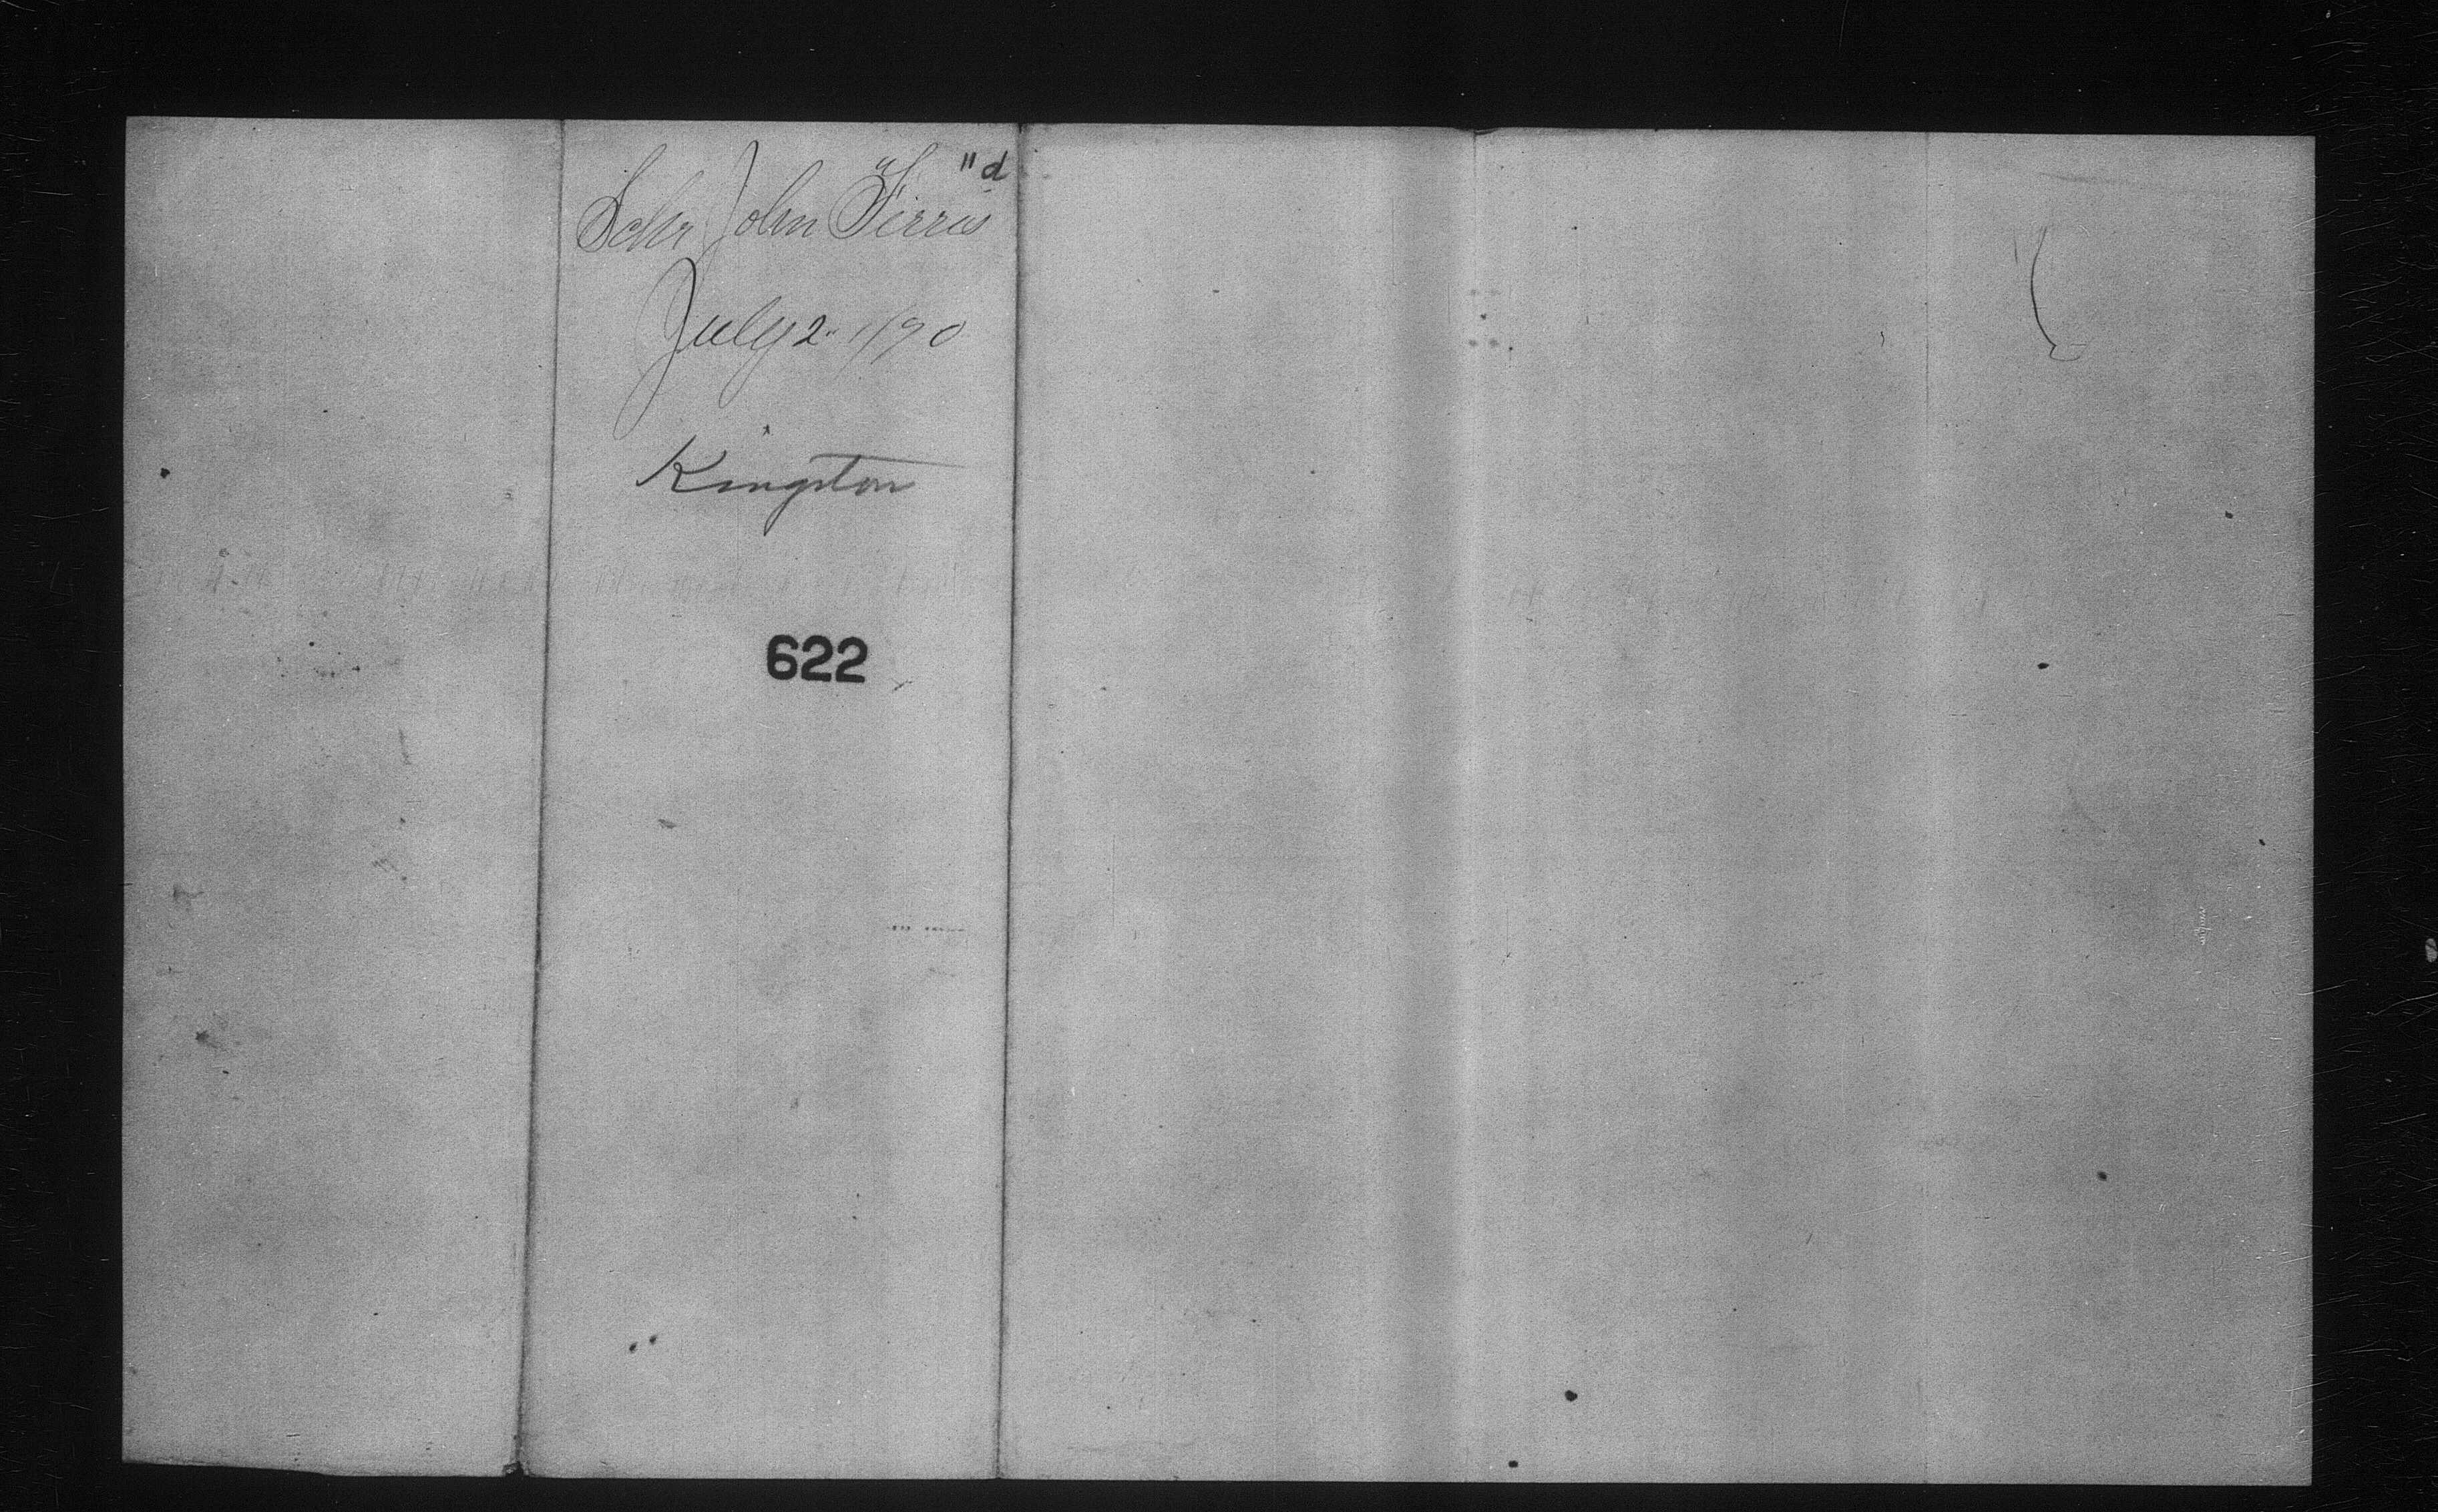 "d
Schr John Ferris
July 2" 1/90
Kingston
622